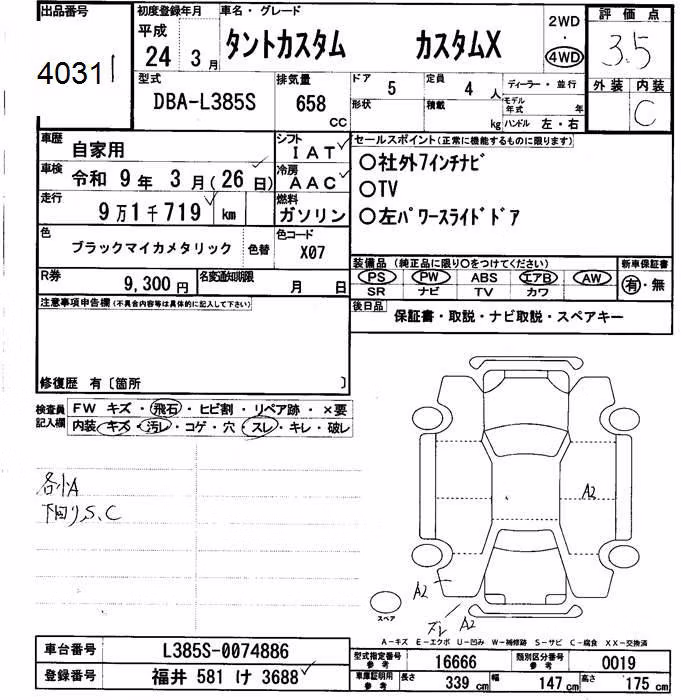 出品番号 初度登録年月 車名・グレード 2WD 評価点
平成 ・
4031 24年 3月 タントカスタム カスタムX 4WD 3.5
型式 排気量 ドア 5 定員 4人 ディーラー・並行 外装 内装
DBA-L385S 658 形状 積載 モデル年式 年 C
CC kg ハンドル 左・右
車歴 自家用 シフト IAT セールスポイント(正常に機能するものに限ります)
車検 令和 9年 3月(26日) 冷房 AAC 〇社外7インチナビ
走行 9万1千719 km 燃料 ガソリン 〇TV
〇左パワースライドドア
色 ブラックマイカメタリック 色替 色コード X07
装備品(純正品に限り〇をつけてください) 新車保証書
R券 9,300円 名変通知期限 月 日 PS PW ABS エアB AW 有・無
SR ナビ TV カワ
注意事項申告欄(不具合内容等は具体的に記入して下さい) 後日品 保証書・取説・ナビ取説・スペアキー
修復歴 有〔箇所 〕
検査員 FW キズ・飛石・ヒビ割・リペア跡・×要
記入欄 内装・キズ・汚レ・コゲ・穴・スレ・キレ・破レ
各小A
下回りS、C
A2
A2
A2
スペア
A-キズ E-エクボ U-凹み W-補修跡 S-サビ C-腐食 XX-交換済
車台番号 L385S-0074886 型式指定番号 参考 16666 類別区分番号 参考 0019
登録番号 福井 581 け 3688 車庫証明用 参考 長さ 339cm 幅 147cm 高さ 175cm